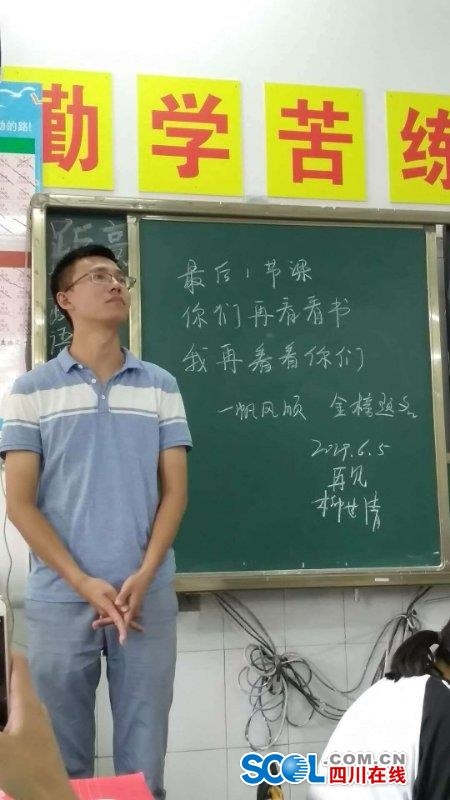 勤学苦练
动的路!
最后1节课
你们再看看书
我再看看你们
一帆风顺 金榜题名
6.5
再见
SCOL.COM.CN
四川在线